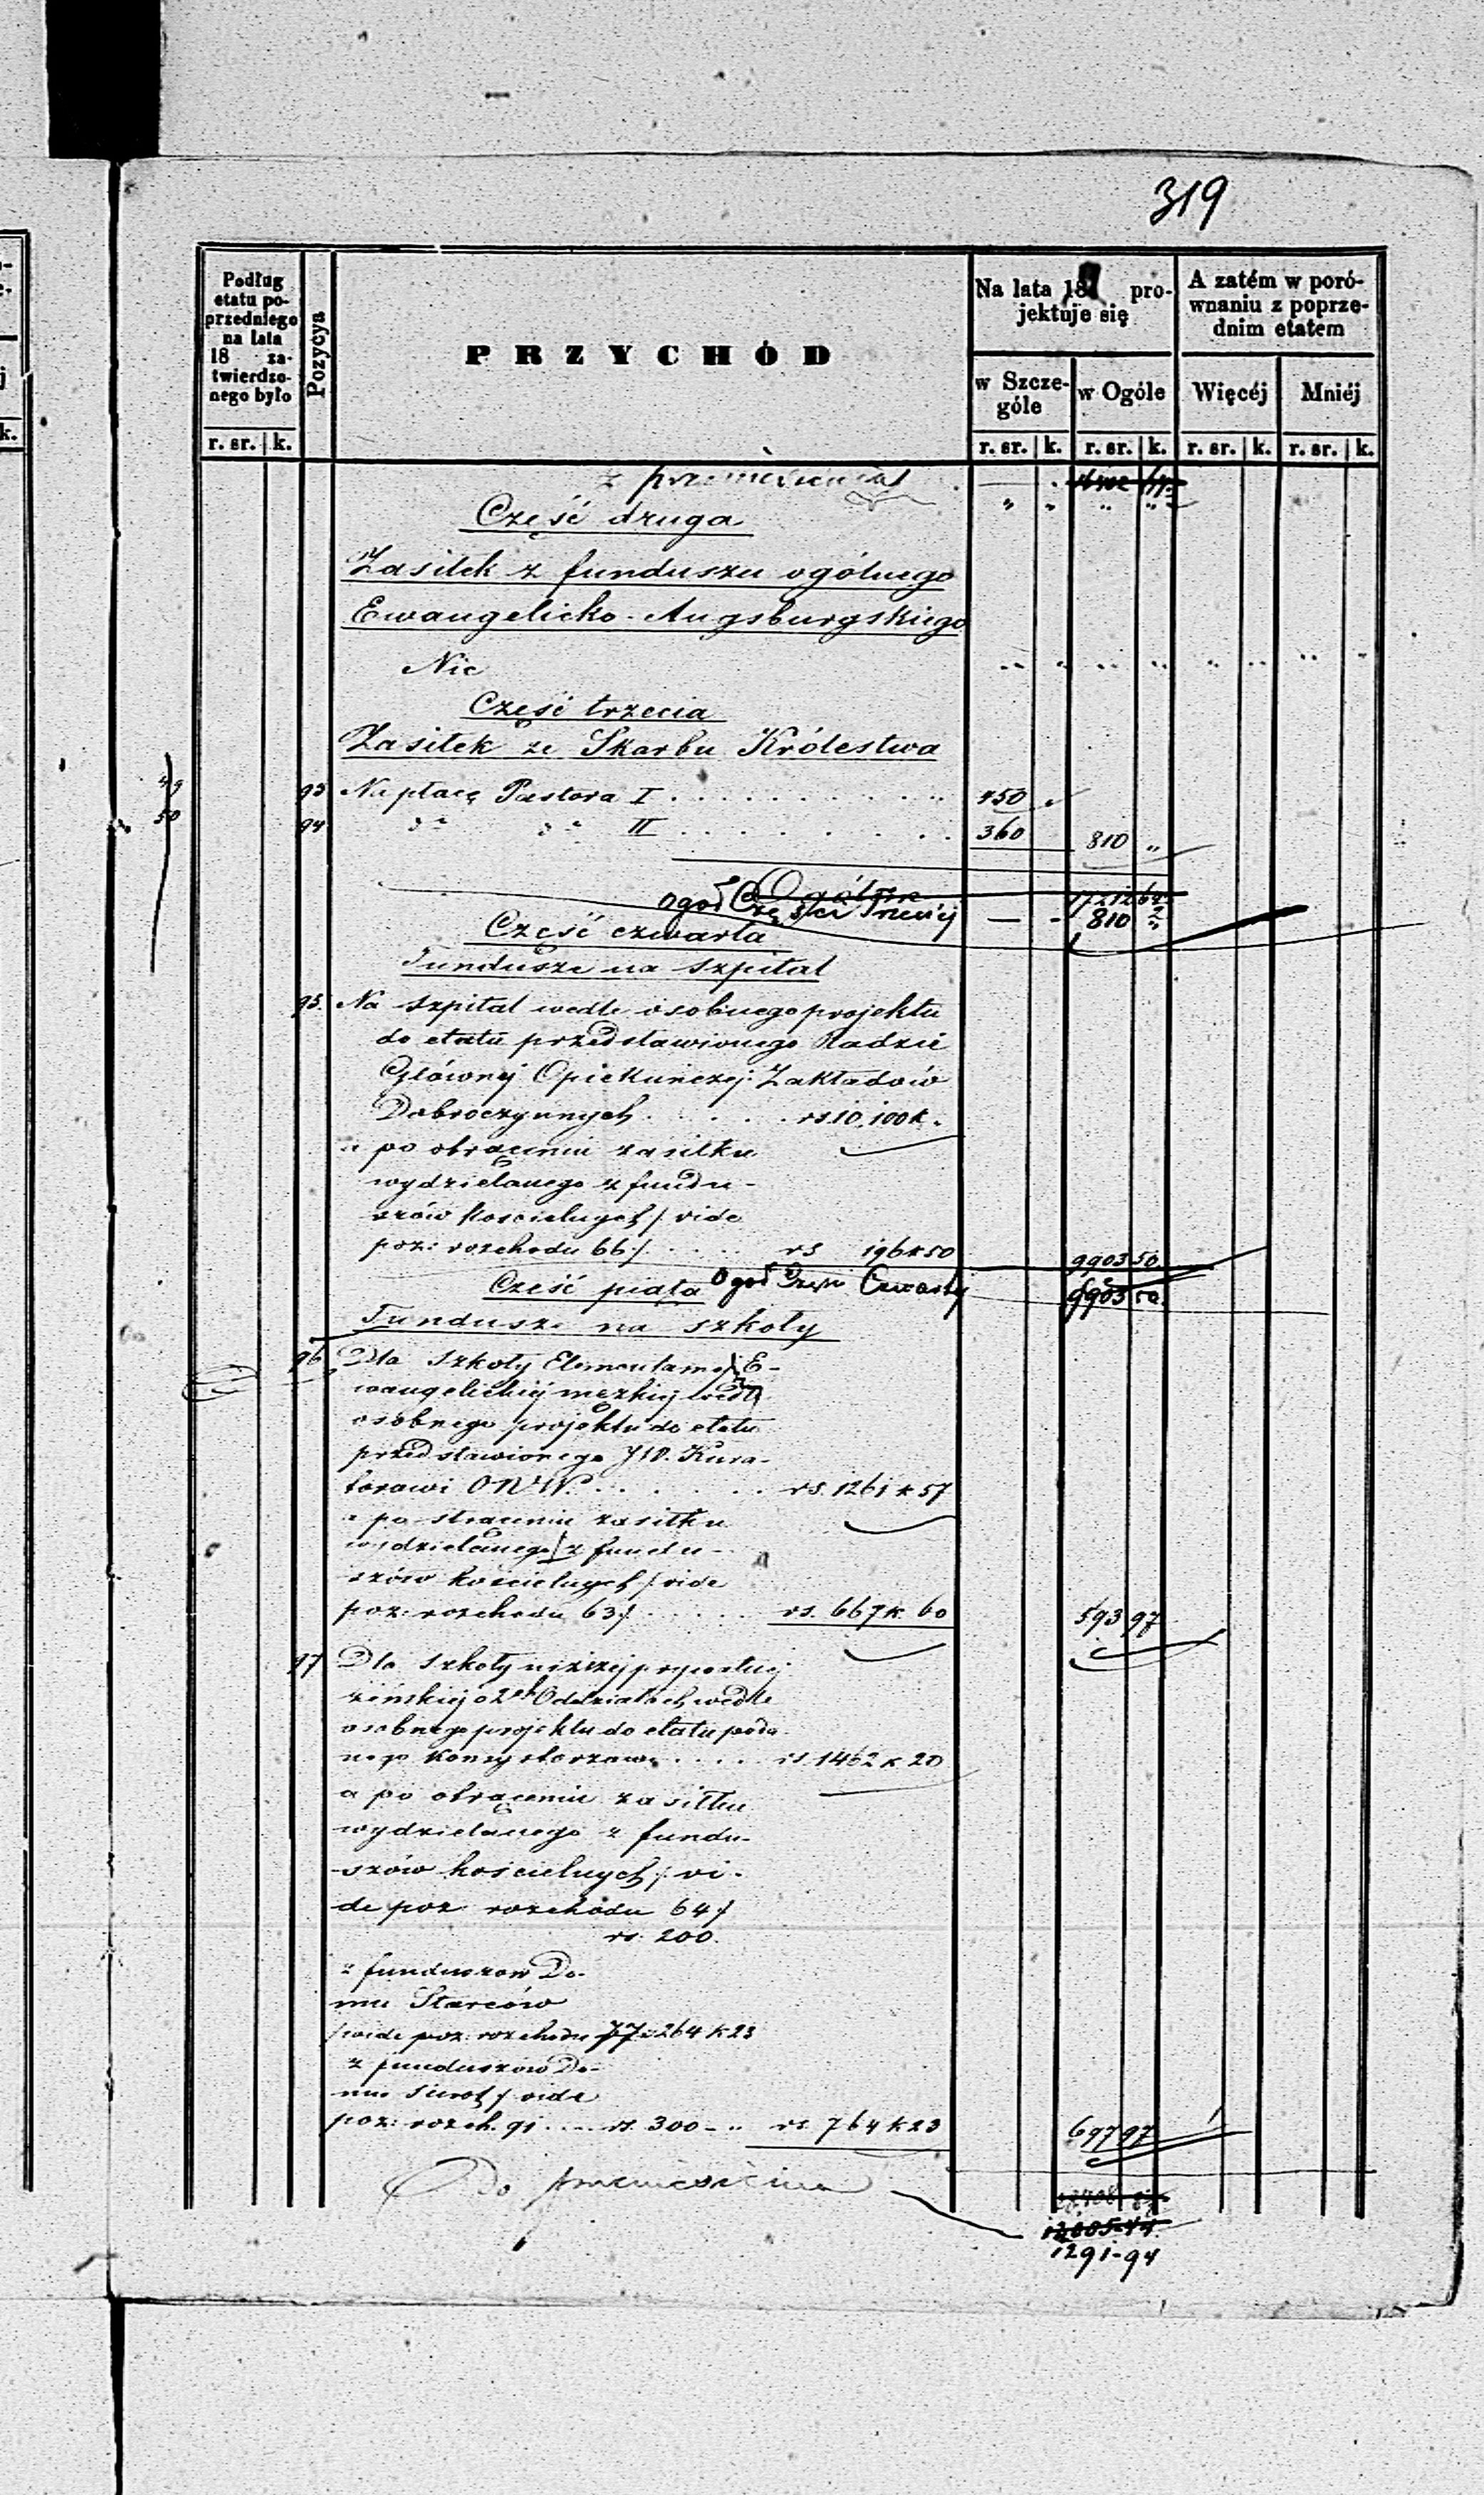 319
Podług etatu poprzedniego na lata 18 zatwierdzonego było
Pozycya
PRZYCHÓD
Na lata 18 projektuje się
A zatém w porównaniu z poprzednim etatem
w Szczególe
w Ogóle
Więcéj
Mniéj
r. sr. k.
r. sr. k.
r. sr. k.
r. sr. k.
r. sr. k.
z przeniesienia
Część druga
Zasiłek z funduszu ogólnego
Ewangelicko-Augsburgskiego
Nic
Część trzecia
Zasiłek ze Skarbu Królestwa
49
93 Na płacę Pastora I . . . . . 450
50
94 II . . . . . 360 810 „
Ogółem 17212
Ogół Części Trzeciej — 810 „
Część czwarta
Fundusze na szpital
95. Na szpital wedle osobnego projektu
do etatu przedstawionego Radzie
Głównej Opiekuńczej Zakładów
Dobroczynnych . . . . . rs. 10,100 k. „
a po strąceniu zasiłku
wydzielanego z fundu-
szów kościelnych /vide
poz: rozchodu 66/. . . . rs 196 k 50 9903 50
Część piąta Ogół Części Czwartej 9903 50
Fundusze na szkoły
96 Dla Szkoły Elementarnej E-
wangelickiej męzkiej wedle
osobnego projektu do etatu
przedstawionego JW. Kura-
torowi ONW. . . . . . rs. 1261 k 57
a po strąceniu zasiłku
wydzielanego z fundu-
szów kościelnych /vide
poz: rozchodu 63/. . . . rs. 667 k. 60 593 97
97 Dla Szkoły niższej prywatnej
żeńskiej o 2ch Oddziałach wedle
osobnego projektu do etatu poda-
nego Konsystorzowi . . . . rs. 1462 k 20
a po strąceniu zasiłku
wydzielanego z fundu-
szów kościelnych / vi-
de poz rozchodu 64/
rs. 200.
z funduszów Do-
mu Starców
/vide poz: rozchodu 77 264 k 23
z funduszów Do-
mu Sierot / vide
poz: rozch. 91 . . . . rs. 300 - „ rs. 764 k 23 697 97
Do przeniesienia
12005-44
1291-94